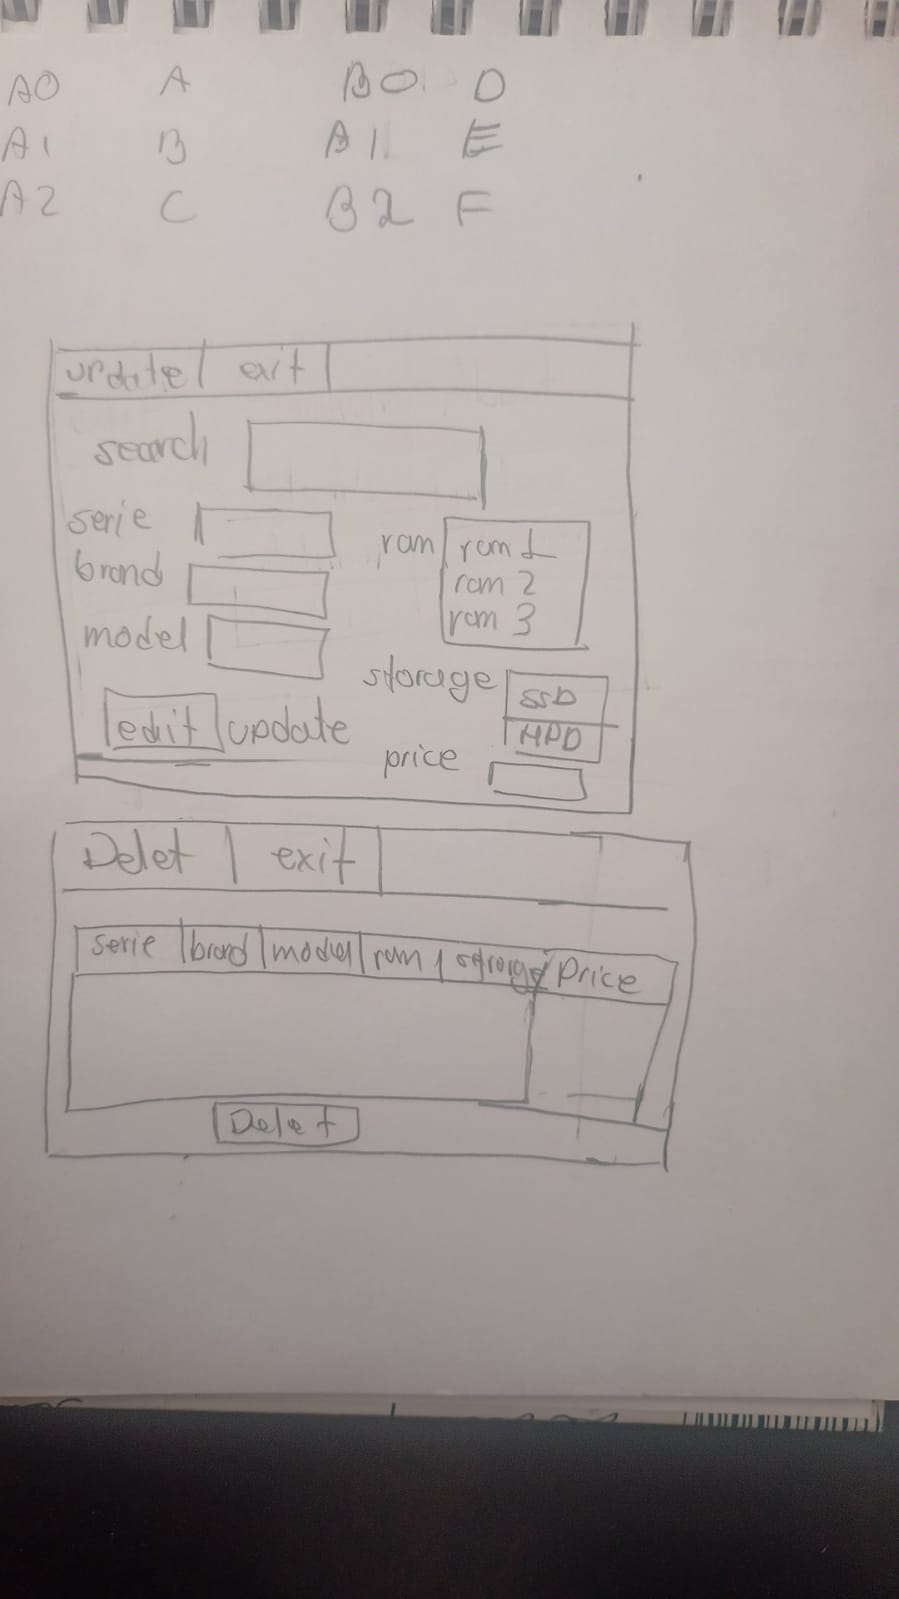 A0 A B0 D
A1 B B1 E
A2 C B2 F
update exit
search
serie
ram ram 1
brand
ram 2
model
ram 3
storage SSD
edit update
HDD
price
Delet exit
serie brand model ram storage Price
Delet